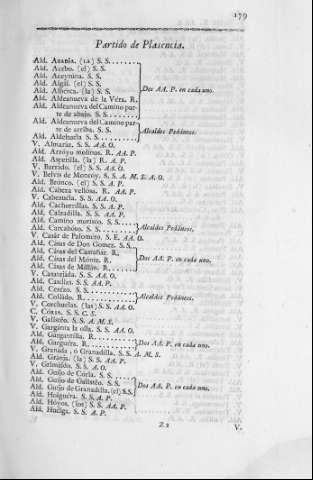 179
Partido de Plasencia.
Ald. Abadia. (la) S. S.
Ald. Acebo. (el) S. S.
Ald. Aceytuna. S. S.
Ald. Aigal. (el) S. S.
Ald. (la) S. S.
Dos AA. P. en cada uno.
Ald. Aldeanueva de la Vera. R.
Ald. Aldeanueva del Camino par-
te de abajo. S. S.
Ald. Aldeanueva del Camino par-
te de arriba. S. S.
Alcaldes Pedáneos.
Ald. Aldehuela S. S.
V. Almaráz. S. S. AA. O.
Ald. Arroyo molinos. R. AA. P.
Ald. Asperilla. (la) R. A. P.
V. Barrado. (el) S. S. AA. O.
V. Belvis de Monroy. S. S. A. M. S. A. O.
Ald. Bronco. (el) S. S. A. P.
Ald. Cabeza vellosa. R. AA. P.
V. Cabezuela. S. S. AA. O.
Ald. Cachorrillas. S. S. A. P.
Ald. Calzadilla. S. S. AA. P.
Ald. Camino morisco. S. S.
Ald. Carcaboso. S. S.
Alcaldes Pedáneos.
V. Casár de Palomero. S. E. AA. O.
Ald. Cásas de Don Gomez. S. S.
Ald. Cásas del Castañar. R.
Ald. Cásas del Monte. R.
Ald. Cásas de Millán. R.
Dos AA. P. en cada uno.
V. Casatejada. S. S. AA. O.
Ald. Casillas. S. S. AA. P.
Ald. Cerezo. S. S.
Ald. Colládo. R.
Alcaldes Pedáneos.
V. Corchuelas. (las) S. S. AA. O.
C. CORIA. S. S. C. S.
V. Galisteo. S. S. A. M. S.
V. Garganta la olla. S. S. AA. O.
Ald. Gargantilla. R.
Ald. Garguera. R.
Dos AA. P. en cada uno.
V. Granada, o Granadilla. S. S. A. M. S.
Ald. Granja. (la) S. S. AA. P.
V. Grimaldo. S. S. A. O.
Ald. Guijo de Coria. S. S.
Ald. Guijo de Galistéo. S. S.
Ald. Guijo de Granadilla. (el) S. S.
Dos AA. P. en cada uno.
Ald. Holguera. S. S. A. P.
Ald. Hoyos. (los) S. S. AA. P.
Ald. Huelga. S. S. A. P.
Z 2
V.